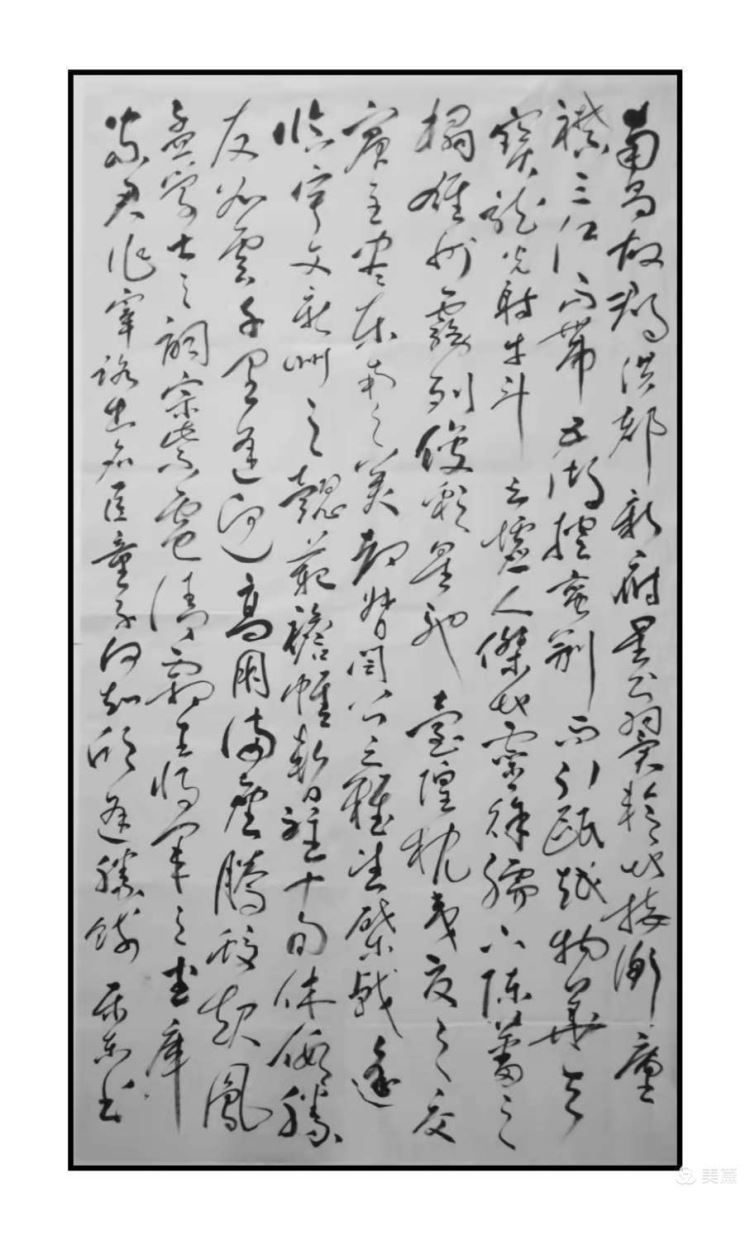 南昌故郡洪都新府星分翼轸地接衡廬
襟三江而带五湖控蛮荆而引瓯越物華天
寶龙光射牛斗之墟人傑地靈徐孺下陈蕃之
榻雄州霧列俊彩星驰臺隍枕夷夏之交
賓主尽东南之美都督阎公之雅望棨戟遥
临宇文新州之懿範襜帷暂駐十旬休假勝
友如雲千里逢迎高朋满座腾蛟起鳳
孟学士之詞宗紫電清霜王将军之武库
家君作宰路出名臣童子何知躬逢勝饯 书
美篇